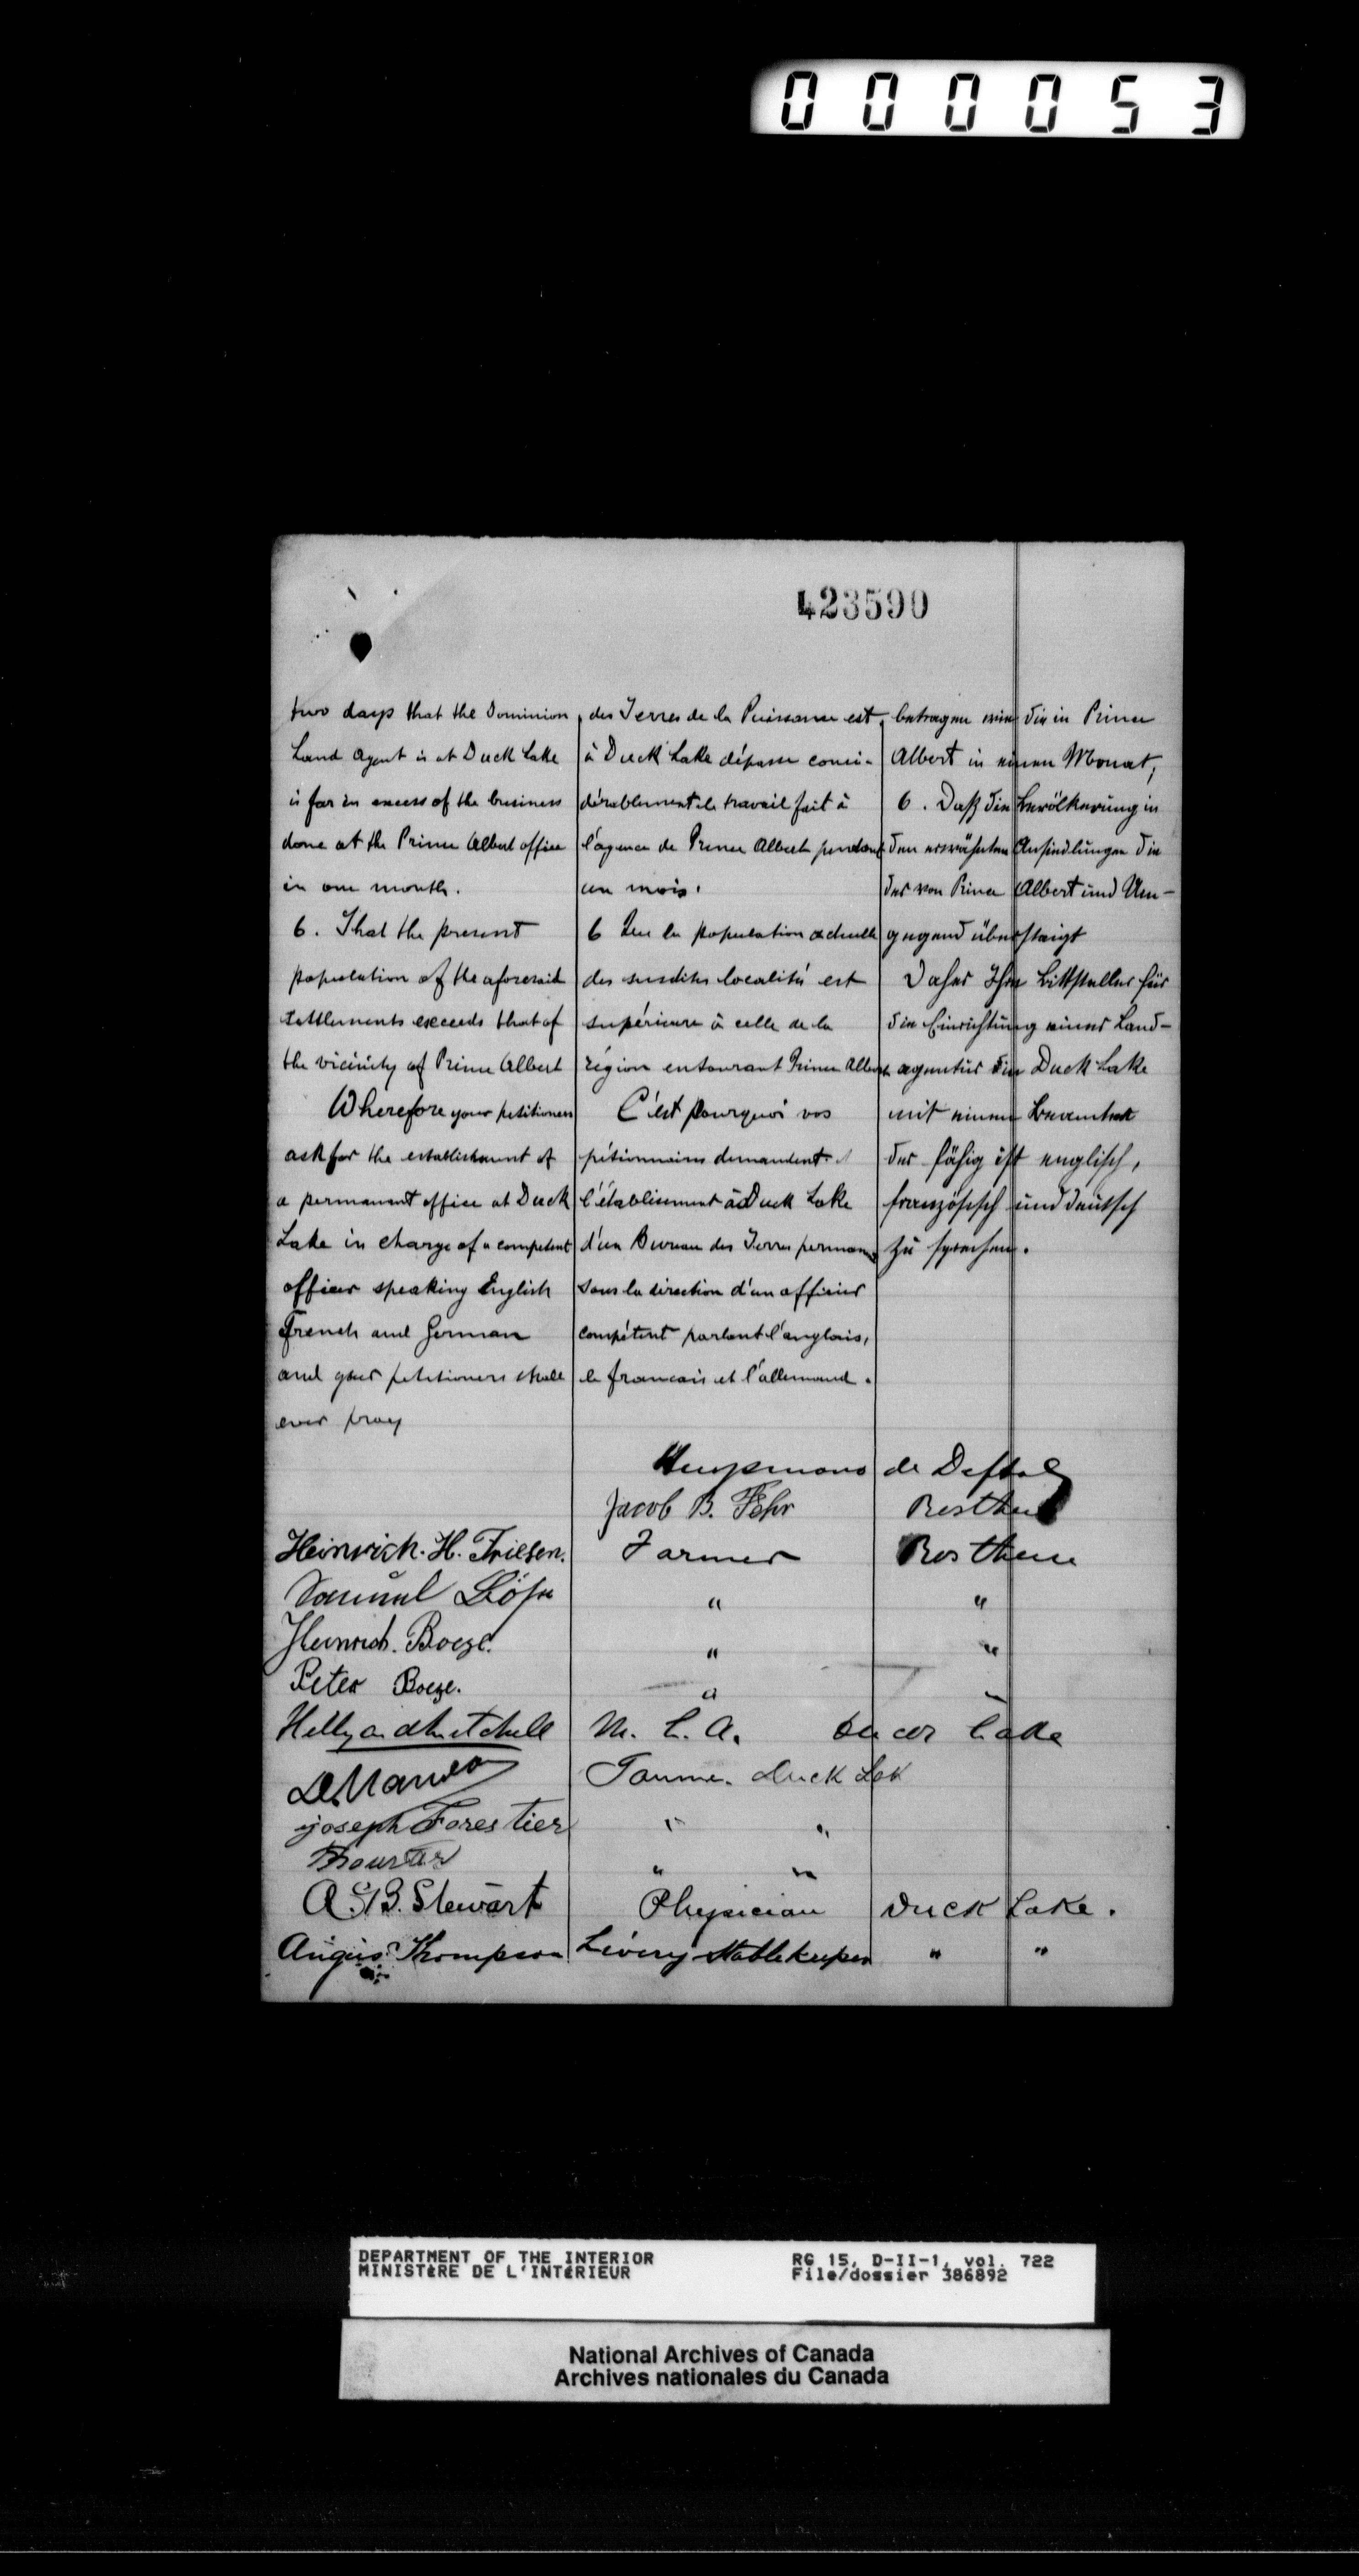 000053
423590
two days that the Dominion
Land Agent is at Duck Lake
is far in excess of the business
done at the Prince Albert office
in one month.
6. That the present
population of the aforesaid
settlements exceeds that of
the vicinity of Prince Albert
Wherefore your petitioners
ask for the establishment of
a permanent office at Duck
Lake in charge of a competent
officer speaking English
French and German
and your petitioners shall
ever pray
des Terres de la Puissance est
à Duck Lake dépasse consi-
dérablement le travail fait à
l'agence de Prince Albert pendant
un mois.
6 Que la population actuelle
des susdites localités est
supérieure à celle de la
région entourant Prince Albert
C'est pourquoi vos
pétionnaires demandent
l'établissement à Duck Lake
d'un Bureau des Terres permanent
sous la direction d'un officier
compétent parlant l'anglais,
le francais et l'allemand.
betragen wie die in Prince
Albert in einen Monat;
6. Daß die Bevölkerung in
den erwähnten Ansiedlungen die
der von Prince Albert und Um-
gegend übersteigt
Daher Ihre Bittsteller für
die Einrichtung einer Land-
agentur in Duck Lake
mit einem Beamten
der fähig ist englisch,
französisch und deutsch
zu sprechen.
de
Jacob B. Fehr Rosthern
Heinrich. H. Friesen. Farmer Rosthern
Samuel " "
Heinrich. Boese. " "
Peter Boese. "
Hillyard Mitchell M. L. A. Duck Lake
Duck Lake
Joseph Forestier " "
" "
A. B. Stewart Physician Duck Lake.
Angus Thompson Livery Stable keeper " "
DEPARTMENT OF THE INTERIOR
MINISTèRE DE L'INTéRIEUR
RG 15, D-II-1, vol. 722
File/dossier 386892
National Archives of Canada
Archives nationales du Canada